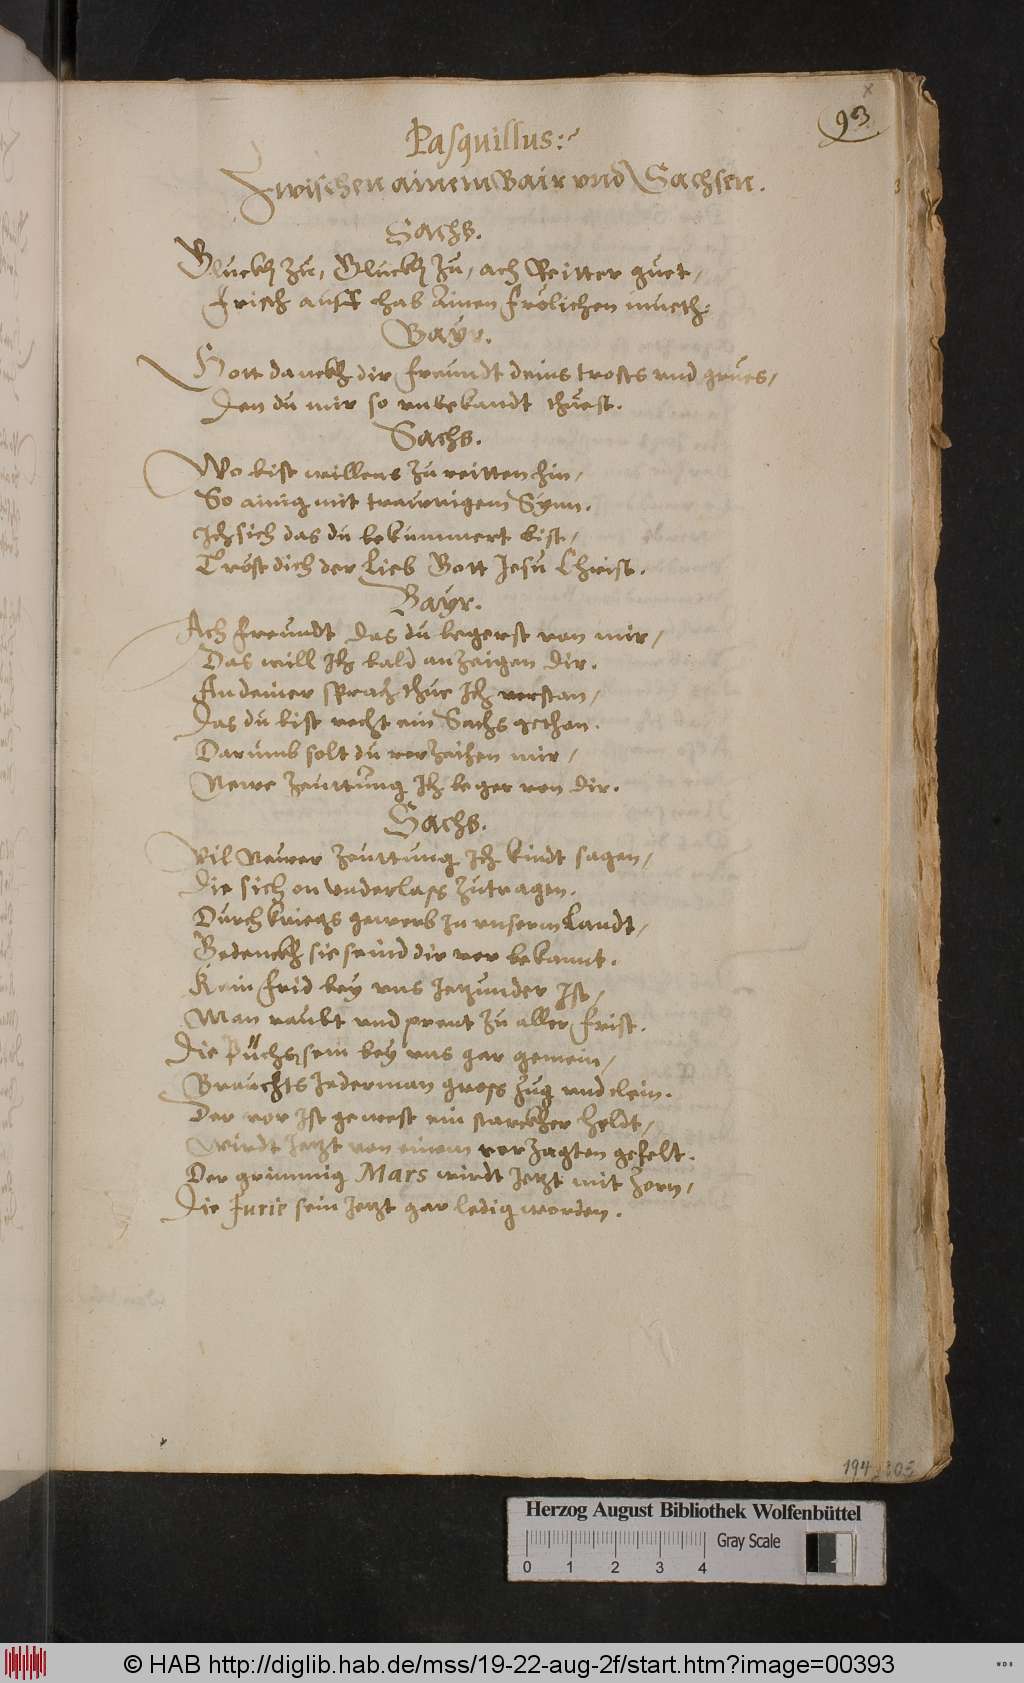 93
Pasquillus:
Zwischen ainem Bair vnd Sachsen.
Sachs.
Gluckh zu, Gluckh zu, ach Reitter guet,
Frisch auff hab ainen frölichen mueth.
Bayr.
Gott danckh dir freundt deins trosts vnd grues,
Den du mir so vnbekandt thuest.
Sachs.
Wo bist willens zu reitten hin,
So ainig mit trawrigem Synn.
Ich sich das du bekummert bist,
Tröst dich der Lieb Gott Jesu Christ.
Bayr.
Ach freundt das du begerst von mir,
Das will Ich bald anzaigen dir.
An deiner sprach thue Ich verstan,
Das du bist recht ein Sachs gethan.
Darumb solt du verzeihen mir,
Newe zeuttung Ich beger von dir.
Sachs.
Vil Newer zeuttung Ich kindt sagen,
Die sich on vnderlass zutragen.
Durch kriegs gewerb In vnserm Landt,
Gedenckh sie seind dir vor bekannt.
Kein frid bey vns Jetzunder Ist,
Man raubt vnd prent zu aller frist.
Die Püchs sein bey vns gar gemein,
Brauchts Jederman gross Jung vnd clein.
Der vor Ist gewest ein starckher heldt,
Wirdt Jetzt von einem verzagten gefelt.
Der grimmig Mars wirdt Jetzt mit Zorn,
Die Furie sein Jetzt gar ledig worden.
194
303
Herzog August Bibliothek Wolfenbüttel
Gray Scale
0 1 2 3 4
© HAB http://diglib.hab.de/mss/19-22-aug-2f/start.htm?image=00393